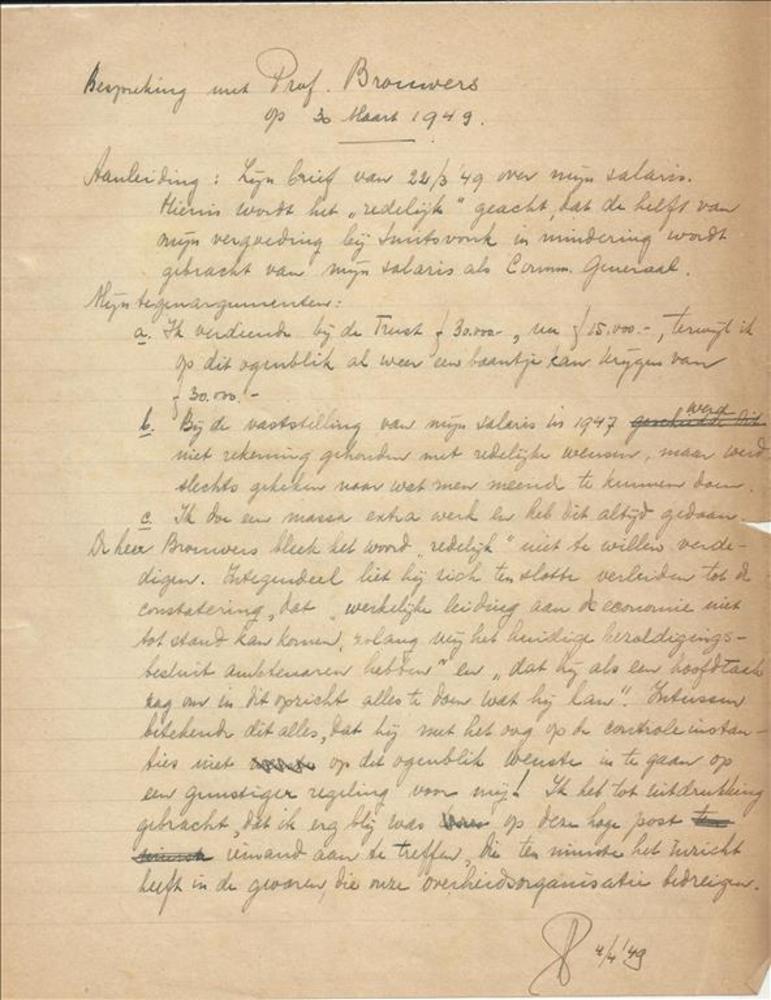 Bespreking met Prof. Brouwers
op 30 Maart 1949.
Aanleiding: Zijn brief van 22/3 '49 over mijn salaris.
Hierin wordt het "redelijk" geacht, dat de helft van
mijn vergoeding bij Smitsvonk in mindering wordt
gebracht van mijn salaris als Comm. Generaal.
Mijn tegenargumenten:
a. Ik verdiende bij de Trust ƒ 30.000-, nu ƒ 15.000.-, terwijl ik
op dit ogenblik al weer een baantje kan krijgen van
ƒ 30.000.-
b. Bij de vaststelling van mijn salaris in 1947 geschiedde dit werd
niet rekening gehouden met redelijke wensen, maar werd
slechts gekeken naar wat men meende te kunnen doen.
c. Ik doe een massa extra werk en heb dit altijd gedaan.
De heer Brouwers bleek het woord "redelijk" niet te willen verde-
digen. Integendeel liet hij zich ten slotte verleiden tot de
constatering, dat "werkelijke leiding aan de economie niet
tot stand kan komen, zolang wij het huidige bezoldigings-
besluit ambtenaren hebben" en "dat hij als een hoofdtaak
zag om in dit opzicht alles te doen wat hij kan". Intussen
betekende dit alles, dat hij met het oog op de controle instan-
ties niet op dit ogenblik wenste in te gaan op
een gunstiger regeling voor mij! Ik heb tot uitdrukking
gebracht, dat ik erg blij was op deze hoge post
iemand aan te treffen, die ten minste het inzicht
heeft in de gevaren, die onze overheidsorganisatie bedreigen.
4/4 '49